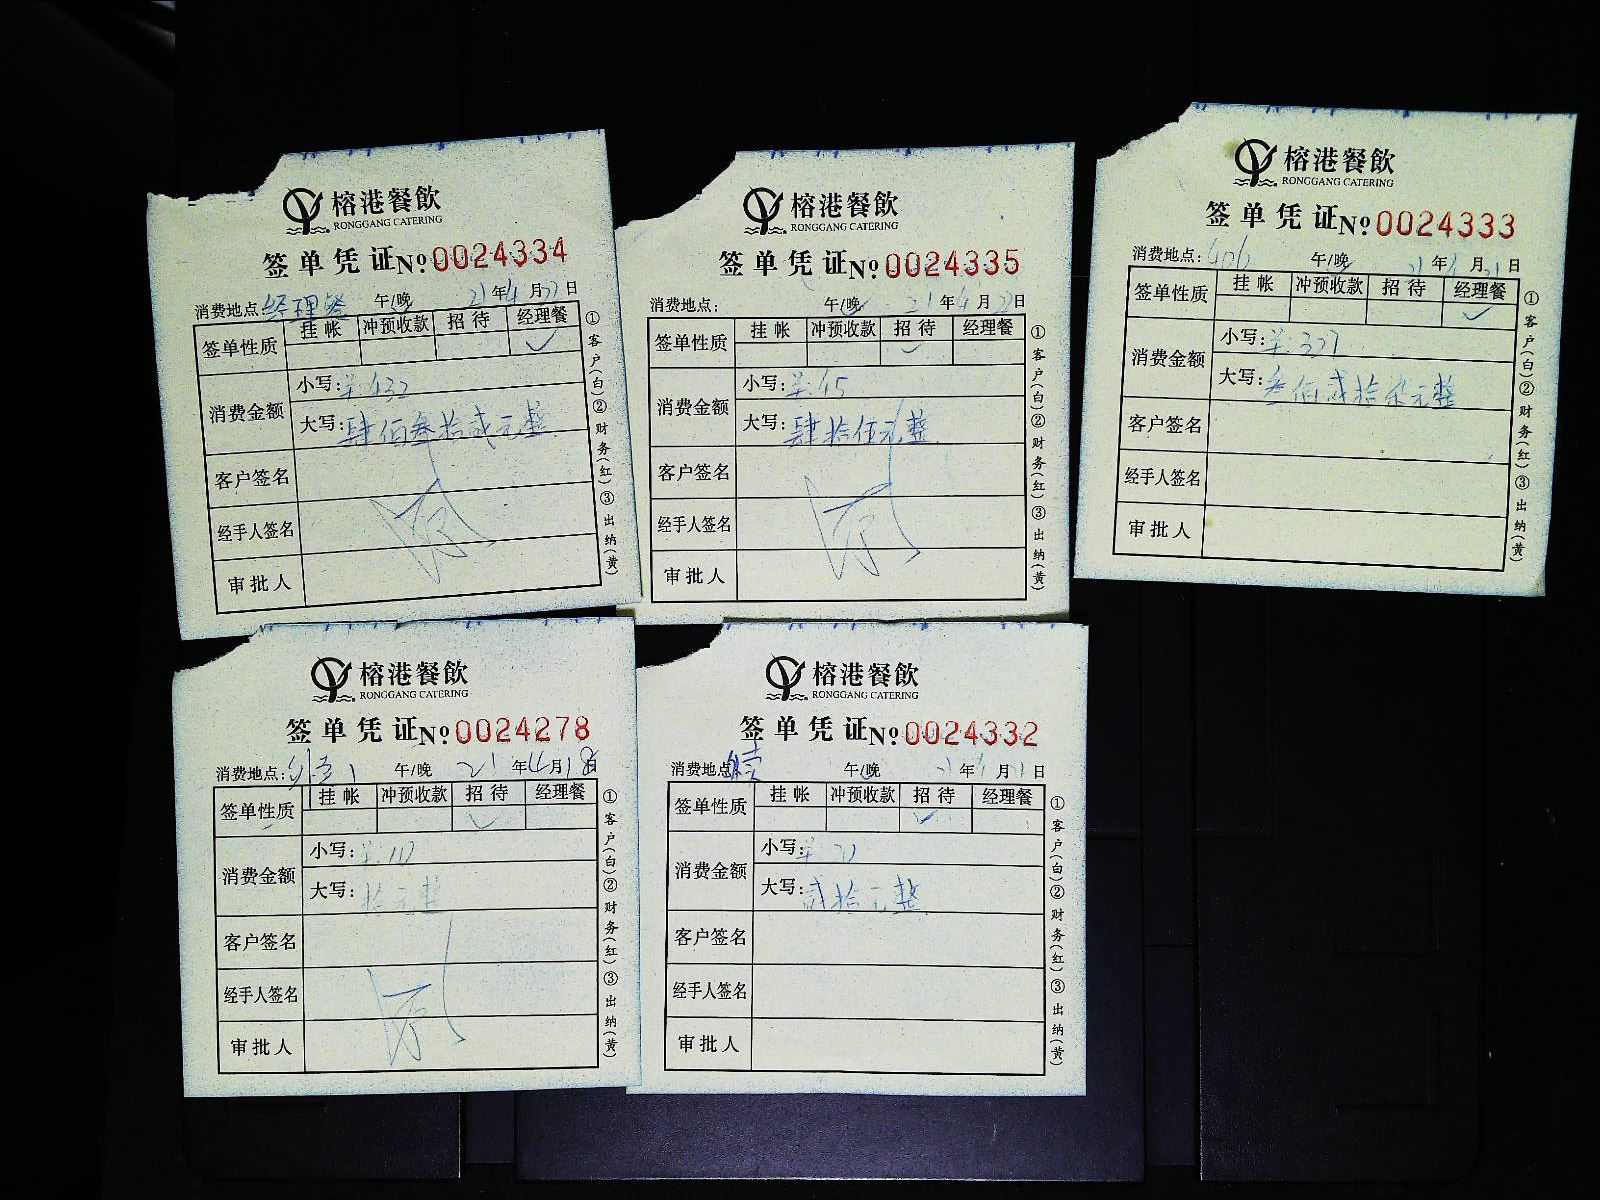 榕港餐飲
RONGGANG CATERING
签单凭证 No 0024334
消费地点:经理餐 午/晚 21年4月22日
签单性质 挂帐 冲预收款 招待 经理餐
消费金额 小写:432
大写:肆佰叁拾贰元整
客户签名
经手人签名
审批人
①客户(白)②财务(红)③出纳(黄)
榕港餐飲
RONGGANG CATERING
签单凭证 No 0024335
消费地点: 午/晚 21年4月2日
签单性质 挂帐 冲预收款 招待 经理餐
消费金额 小写:45
大写:肆拾伍元整
客户签名
经手人签名
审批人
①客户(白)②财务(红)③出纳(黄)
榕港餐飲
RONGGANG CATERING
签单凭证 No 0024333
消费地点:406 午/晚 21年月21日
签单性质 挂帐 冲预收款 招待 经理餐
消费金额 小写:327
大写:叁佰贰拾柒元整
客户签名
经手人签名
审批人
①客户(白)②财务(红)③出纳(黄)
榕港餐飲
RONGGANG CATERING
签单凭证 No 0024278
消费地点: 午/晚 21年4月18日
签单性质 挂帐 冲预收款 招待 经理餐
消费金额 小写:10
大写:拾元整
客户签名
经手人签名
审批人
①客户(白)②财务(红)③出纳(黄)
榕港餐飲
RONGGANG CATERING
签单凭证 No 0024332
消费地点 午/晚 21年月21日
签单性质 挂帐 冲预收款 招待 经理餐
消费金额 小写:20
大写:贰拾元整
客户签名
经手人签名
审批人
①客户(白)②财务(红)③出纳(黄)